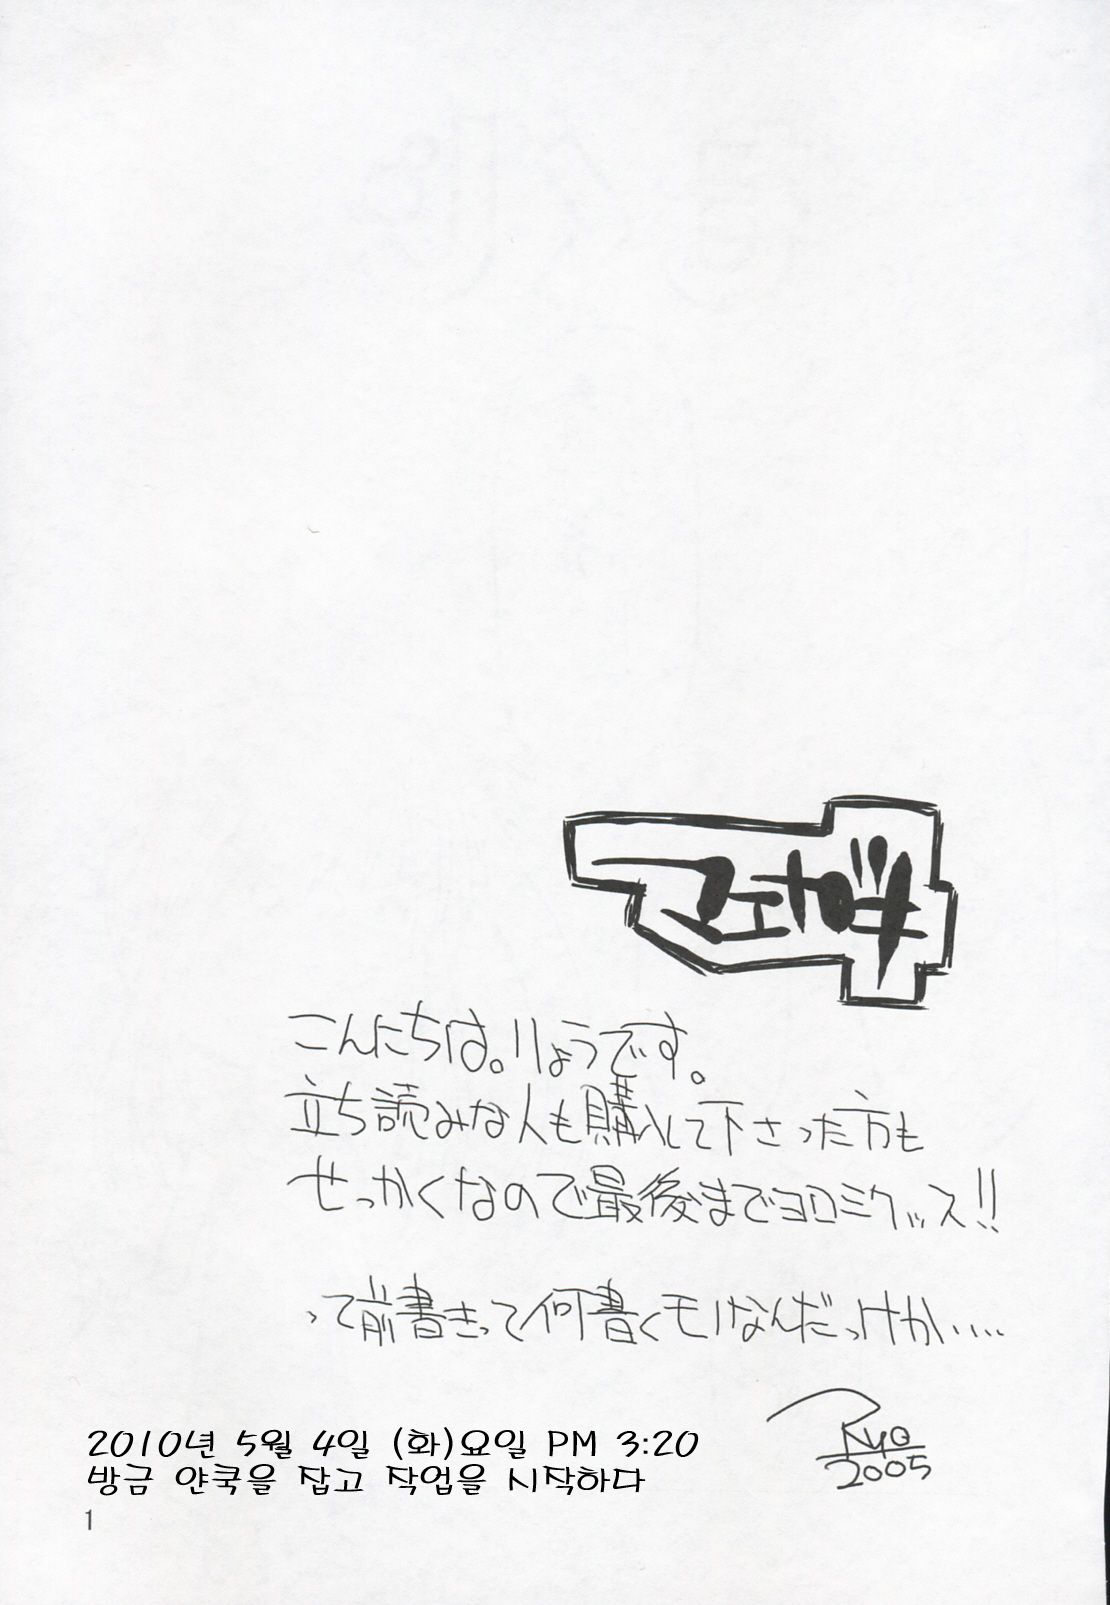 マエガキ
こんにちは。りょうです。
立ち読みな人も購入して下さった方も
せっかくなので最後までヨロミクッス!!
って前書きって何書くモノなんだっけか・・・・
Ryo
2005
2010년 5월 4일 (화)요일 PM 3:20
방금 얀쿡을 잡고 작업을 시작하다
1